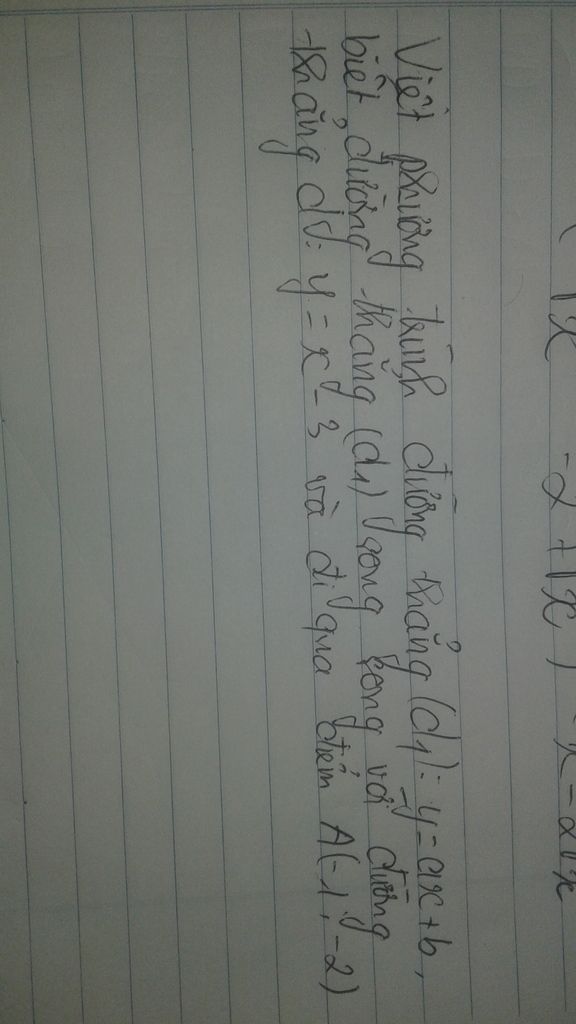 √x - 2 + √x ) x - 2√x
Viết phương trình đường thẳng (d1): y = ax + b,
biết đường thẳng (d1) song song với đường
thẳng d: y = x - 3 và đi qua điểm A(-1; -2)